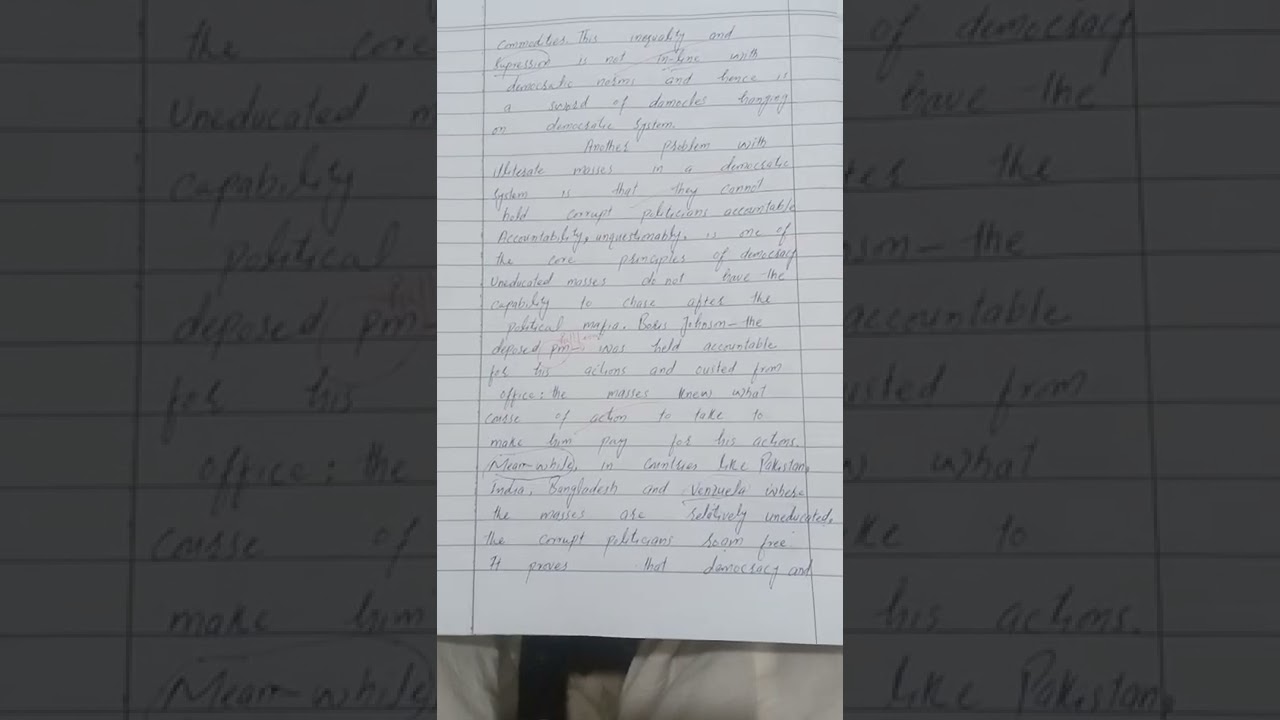 commodities. This inequality and
is not in-line with
democratic norms and hence is
a sword of damocles hanging
on democratic system.
Another problem with
illiterate masses in a democratic
system is that they cannot
hold corrupt politicians accountable
Accountability, unquestionably, is one of
the core principles of democracy
Uneducated masses do not have the
capability to chase after the
political mafia. Boris Johnson- the
deposed pm- was held accountable
for his actions and ousted from
office: the masses knew what
course of action to take to
make him pay for his actions.
Mean-while, in countries like Pakistan,
India, Bangladesh and Venzuela where
the masses are relatively uneducated,
the corrupt politicians roam free
It proves that democracy and